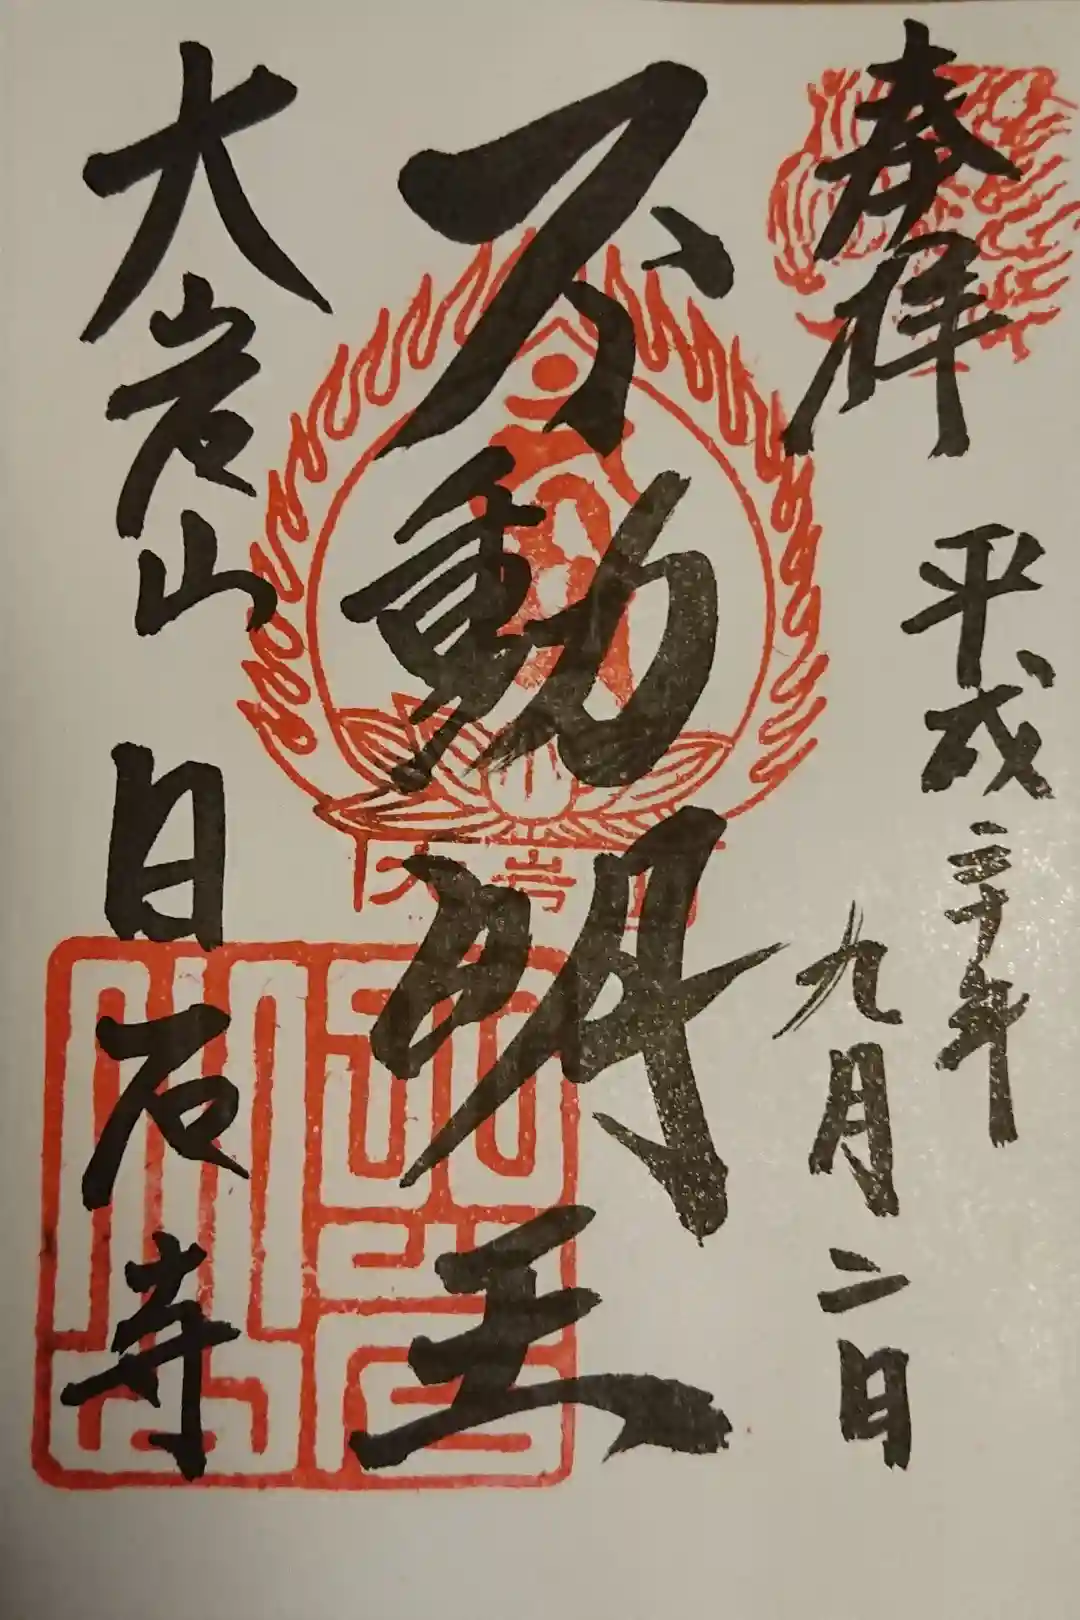 奉拝
平成三十年
九月二日
不動明王
大岩山
大岩山 日石寺